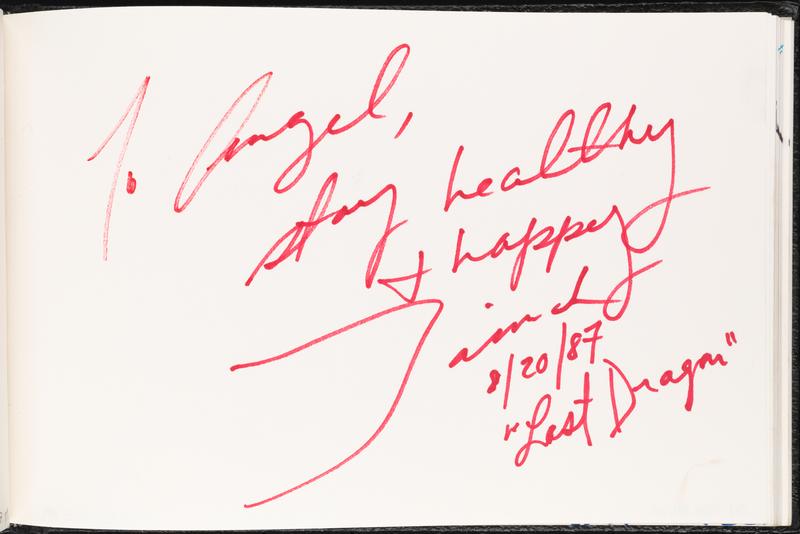 To Angel,
stay healthy
+ happy
Taimak
8/20/87
"Last Dragon"